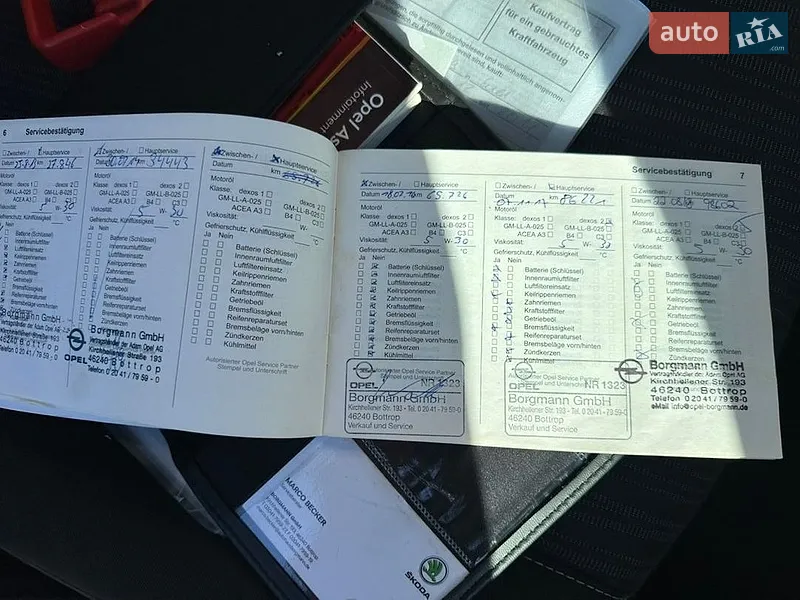 auto RIA.com
Kaufvertrag
für ein gebrauchtes
Kraftfahrzeug
Opel As
Infotainment
6 Servicebestätigung
Zwischen- / Hauptservice
Datum km 27.946
dexos 1 dexos 2
GM-LL-A-025 GM-LL-B-025
ACEA A3 B4 C3
5 W- 30
Gefrierschutz, Kühlflüssigkeit °C
Batterie (Schlüssel)
Innenraumluftfilter
Luftfiltereinsatz
Keilrippenriemen
Zahnriemen
Kraftstofffilter
Getriebeöl
Bremsflüssigkeit
Reifenreparaturset
Borgmann GmbH
Vertragshändler der Adam Opel AG
Kirchhellener Straße 193
46240 Bottrop
Telefon 0 20 41 / 79 59-0
Zwischen- / Hauptservice
Datum km 34443
Motoröl
Klasse: dexos 1 dexos 2
GM-LL-A-025 GM-LL-B-025
ACEA A3 B4 C3
Viskosität: 5 W- 30
Gefrierschutz, Kühlflüssigkeit °C
Ja Nein
Batterie (Schlüssel)
Innenraumluftfilter
Luftfiltereinsatz
Keilrippenriemen
Zahnriemen
Kraftstofffilter
Getriebeöl
Bremsflüssigkeit
Reifenreparaturset
Bremsbeläge vorn/hinten
OPEL
Borgmann GmbH
Vertragshändler der Adam Opel AG
Kirchhellener Straße 193
46240 Bottrop
Telefon 0 20 41 / 79 59-0
Zwischen- / Hauptservice
Datum km
Motoröl
Klasse: dexos 1 dexos 2
GM-LL-A-025 GM-LL-B-025
ACEA A3 B4 C3
Viskosität: W-
Gefrierschutz, Kühlflüssigkeit °C
Ja Nein
Batterie (Schlüssel)
Innenraumluftfilter
Luftfiltereinsatz
Keilrippenriemen
Zahnriemen
Kraftstofffilter
Getriebeöl
Bremsflüssigkeit
Reifenreparaturset
Bremsbeläge vorn/hinten
Zündkerzen
Kühlmittel
Autorisierter Opel Service Partner
Stempel und Unterschrift
Servicebestätigung 7
Zwischen- / Hauptservice
Datum 18.02.16 km 65.726
Motoröl
Klasse: dexos 1 dexos 2
GM-LL-A-025 GM-LL-B-025
ACEA A3 B4 C3
Viskosität: 5 W- 30
Gefrierschutz, Kühlflüssigkeit °C
Ja Nein
Batterie (Schlüssel)
Innenraumluftfilter
Luftfiltereinsatz
Keilrippenriemen
Zahnriemen
Kraftstofffilter
Getriebeöl
Bremsflüssigkeit
Reifenreparaturset
Bremsbeläge vorn/hinten
Zündkerzen
Kühlmittel
Autorisierter Opel Service Partner
Stempel und Unterschrift
OPEL NR 1323
Borgmann GmbH
Kirchhellener Str. 193 • Tel. 0 20 41 - 79 59-0
46240 Bottrop
Verkauf und Service
Zwischen- / Hauptservice
Datum km 86221
Motoröl
Klasse: dexos 1 dexos 2
GM-LL-A-025 GM-LL-B-025
ACEA A3 B4 C3
Viskosität: 5 W- 30
Gefrierschutz, Kühlflüssigkeit °C
Ja Nein
Batterie (Schlüssel)
Innenraumluftfilter
Luftfiltereinsatz
Keilrippenriemen
Zahnriemen
Kraftstofffilter
Getriebeöl
Bremsflüssigkeit
Reifenreparaturset
Bremsbeläge vorn/hinten
Zündkerzen
Kühlmittel
Autorisierter Opel Service Partner
Stempel und Unterschrift
OPEL NR 1323
Borgmann GmbH
Kirchhellener Str. 193 • Tel. 0 20 41 - 79 59-0
46240 Bottrop
Verkauf und Service
Zwischen- / Hauptservice
Datum km 98602
Motoröl
Klasse: dexos 1 dexos 2
GM-LL-A-025 GM-LL-B-025
ACEA A3 B4 C3
Viskosität: 5 W- 30
Gefrierschutz, Kühlflüssigkeit °C
Ja Nein
Batterie (Schlüssel)
Innenraumluftfilter
Luftfiltereinsatz
Keilrippenriemen
Zahnriemen
Kraftstofffilter
Getriebeöl
Bremsflüssigkeit
Reifenreparaturset
Bremsbeläge vorn/hinten
Zündkerzen
Borgmann GmbH
Vertragshändler der Adam Opel AG
Kirchhellener Str. 193
46240 Bottrop
Telefon 0 20 41/79 59-0
eMail info@opel-borgmann.de
MARCO BECKER
BORGMANN GMBH
ŠKODA